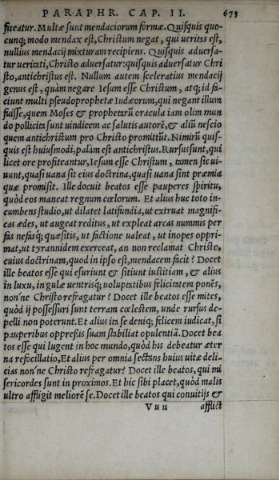 PARAPHR. CAP. II. 673
fiteatur. Multæ sunt mendaciorum formæ. Quisquis quo-
cunq; modo mendax est, Christum negat, qui ueritas est,
nullius mendacij mixturam recipiens. Quisquis aduersa-
tur ueritati, Christo aduersatur: quisquis aduersatur Chri
sto, antichristus est. Nullum autem sceleratius mendacij
genus est, quàm negare Iesum esse Christum, atq; id fa-
ciunt multi pseudoprophetæ Iudæorum, qui negant illum
fuisse, quem Moses & prophetarū oracula iam olim mun
do pollicita sunt uindicem ac salutis autorē, & aliū nescio
quem antichristum pro Christo promittūt. Nimirū quis-
quis est huiusmodi, palàm est antichristus. Rursus sunt, qui
licet ore profiteantur, Iesum esse Christum, tamen sic ui-
uunt, quasi uana sit eius doctrina, quasi uana sint præmia
quæ promisit. Ille docuit beatos esse pauperes spiritu,
quòd eos maneat regnum cœlorum. Et alius huc toto in-
cumbens studio, ut dilatet latifundia, ut extruat magnifi-
cas ædes, ut augeat reditus, ut expleat arcas nummis per
fas nefasq; quæsitis, ut factione ualeat, ut inopes oppri-
mat, ut tyrannidem exerceat, an non reclamat Christo,
cuius doctrinam, quod in ipso est, mendacem facit? Docet
ille beatos esse qui esuriunt & sitiunt iustitiam, & alius
in luxu, in gulæ uentrisq; uoluptatibus felicitatem ponēs,
non'ne Christo refragatur? Docet ille beatos esse mites,
quòd ij possessuri sunt terram cœlestem, unde rursus de-
pelli non poterunt. Et alius in se deniq; felicem iudicat, si
pauperibus oppressis suam stabiliat opulentiā. Docet bea
tos esse qui lugent in hoc mundo, quòd his debeatur æter
na refocillatio, Et alius per omnia sectans huius uitæ deli-
cias non'ne Christo refragatur? Docet ille beatos, qui mi
sericordes sunt in proximos. Et hic sibi placet, quòd malis
ultro affligit meliorē se. Docet ille beatos qui conuitijs &
Vuu afflict